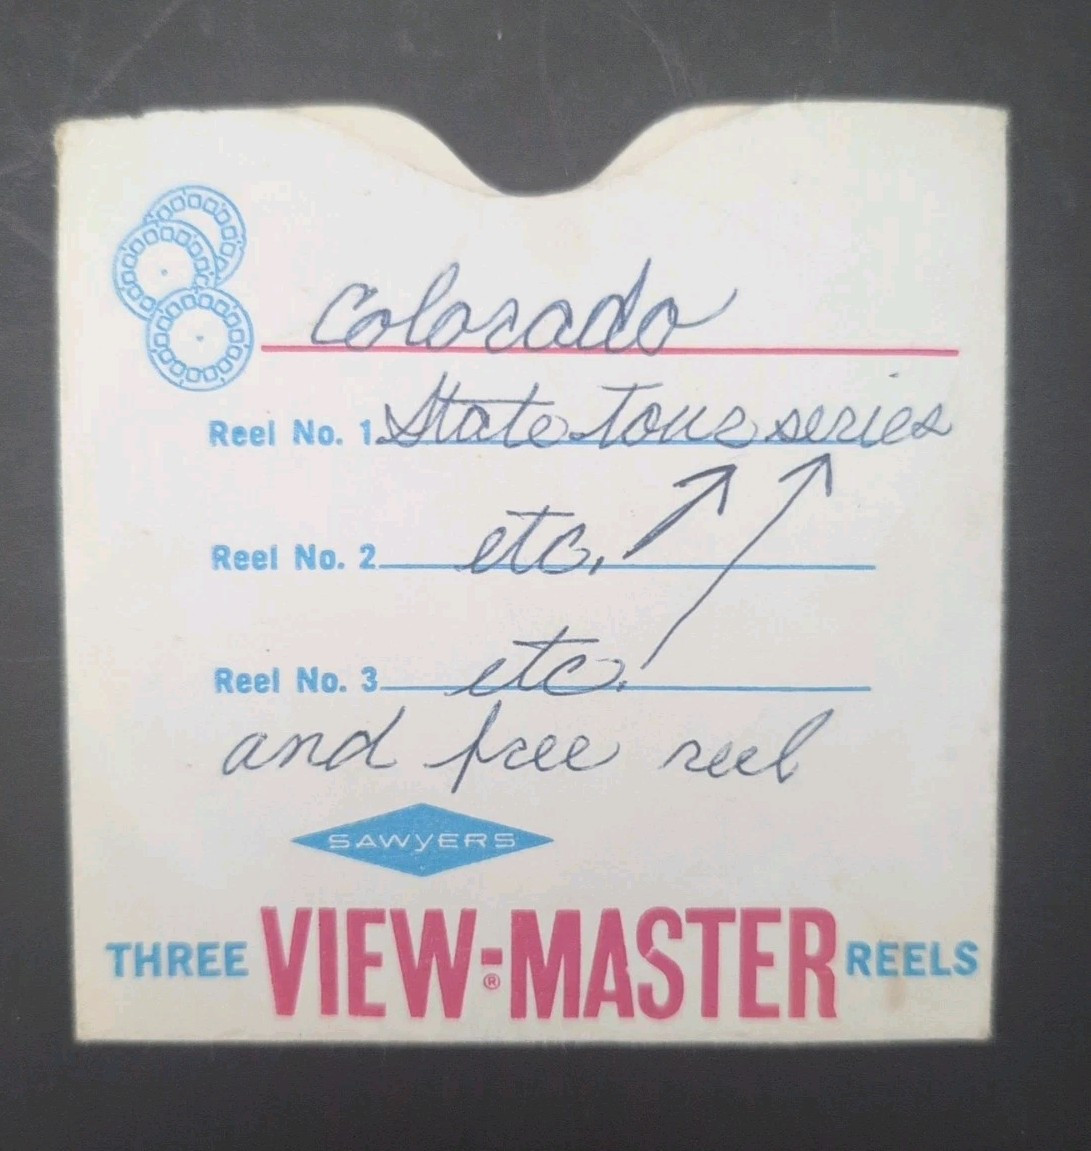 Colorado
Reel No. 1 State tour series
Reel No. 2 etc.
Reel No. 3 etc.
and free reel
SAWYERS
THREE VIEW-MASTER® REELS